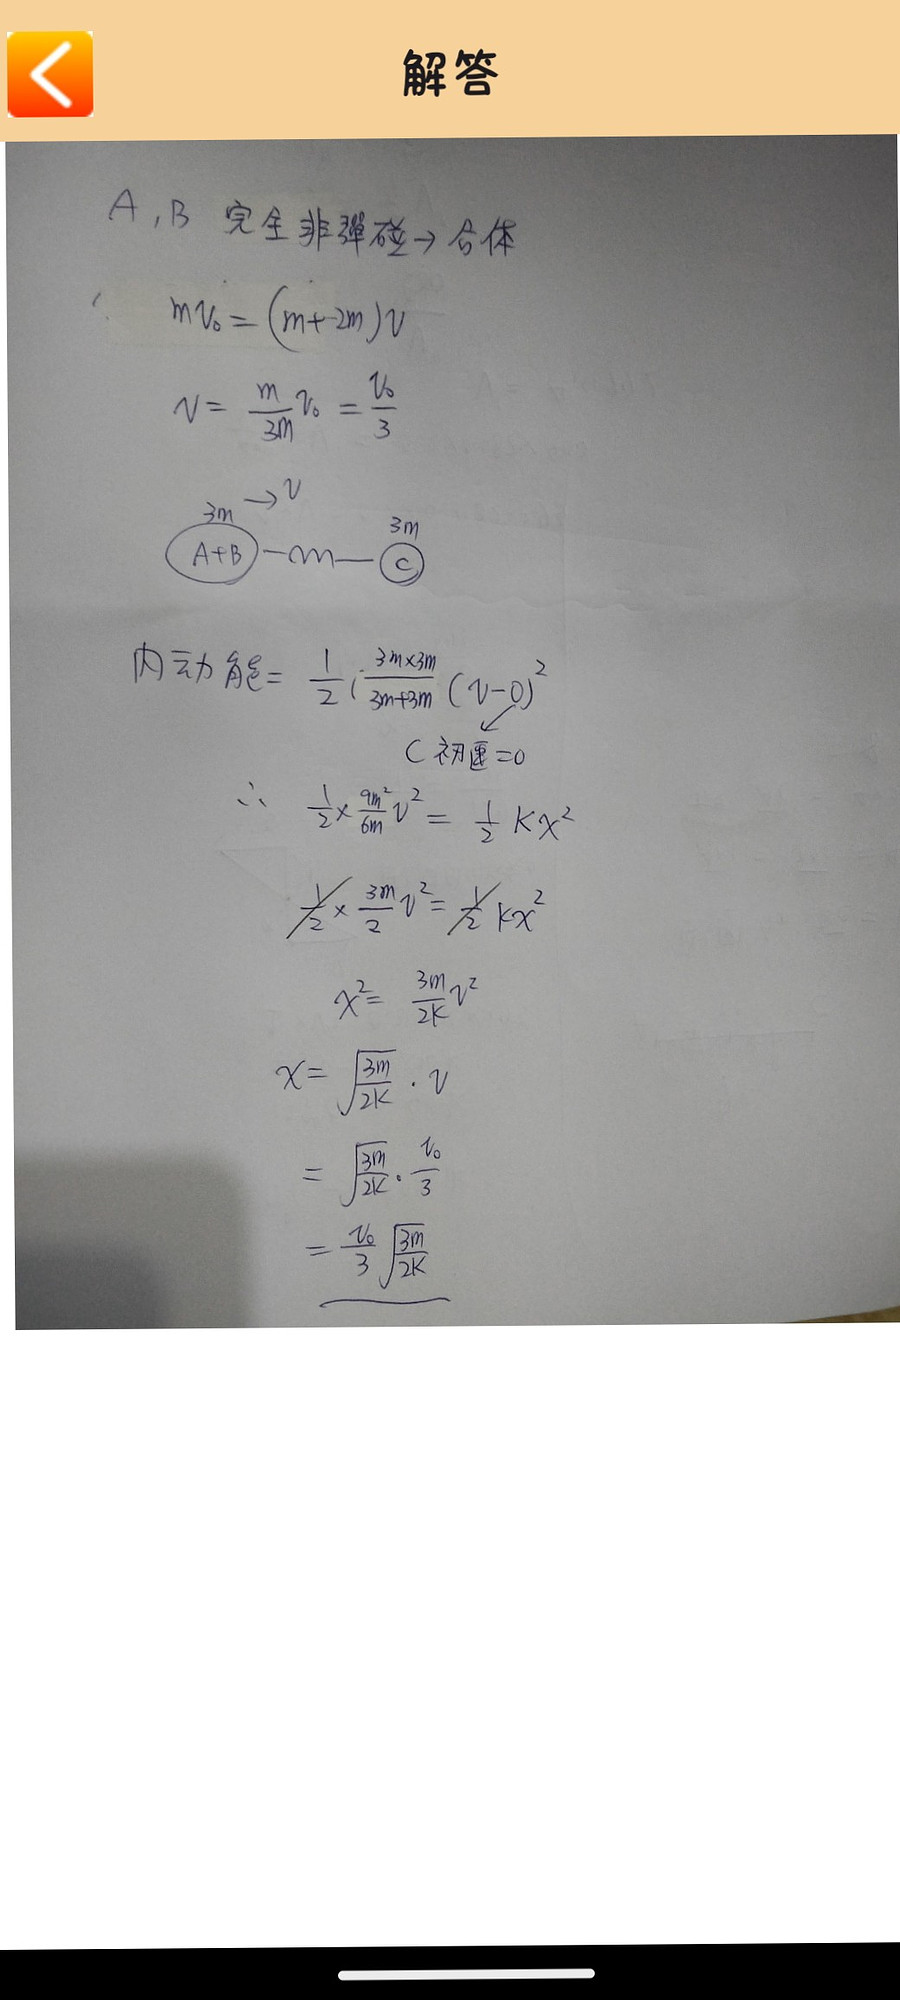 解答
A,B 完全非彈碰→合体
mv₀=(m+2m)v
v= m/3m v₀ = v₀/3
3m →v
3m
A+B
C
內动能= 1/2 · 3m×3m/3m+3m (v-0)²
C 初速=0
∴ 1/2 × 9m²/6m v² = 1/2 Kx²
1/2 × 3m/2 v² = 1/2 Kx²
x²= 3m/2K v²
x= √(3m/2K) · v
= √(3m/2K) · v₀/3
= v₀/3 √(3m/2K)